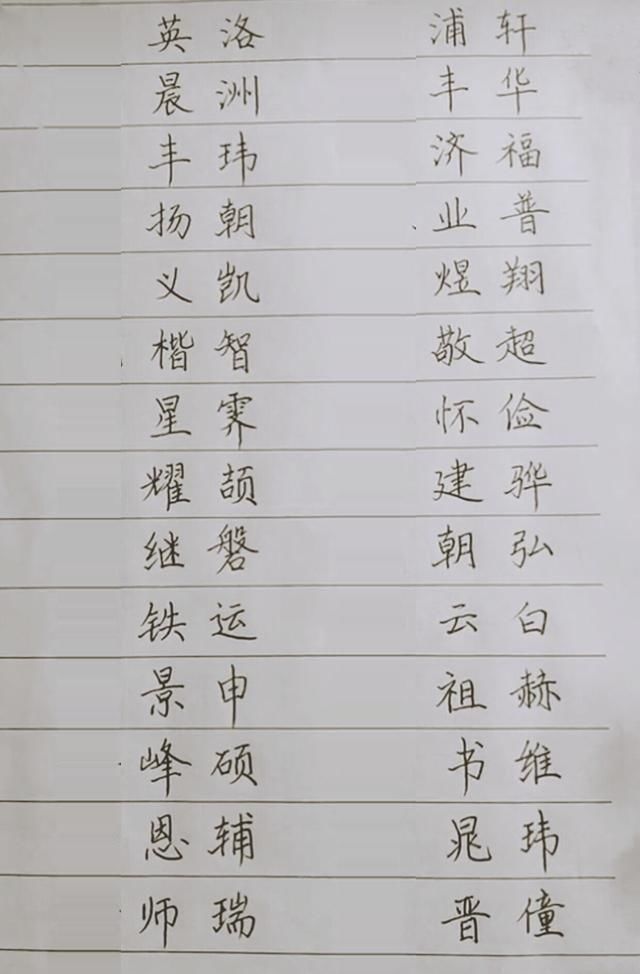 英洛 浦轩
晨洲 丰华
丰玮 济福
扬朝 业普
义凯 煜翔
楷智 敬超
星霁 怀俭
耀颉 建骅
继磐 朝弘
铁运 云白
景申 祖赫
峰硕 书维
恩辅 晁玮
师瑞 晋僮